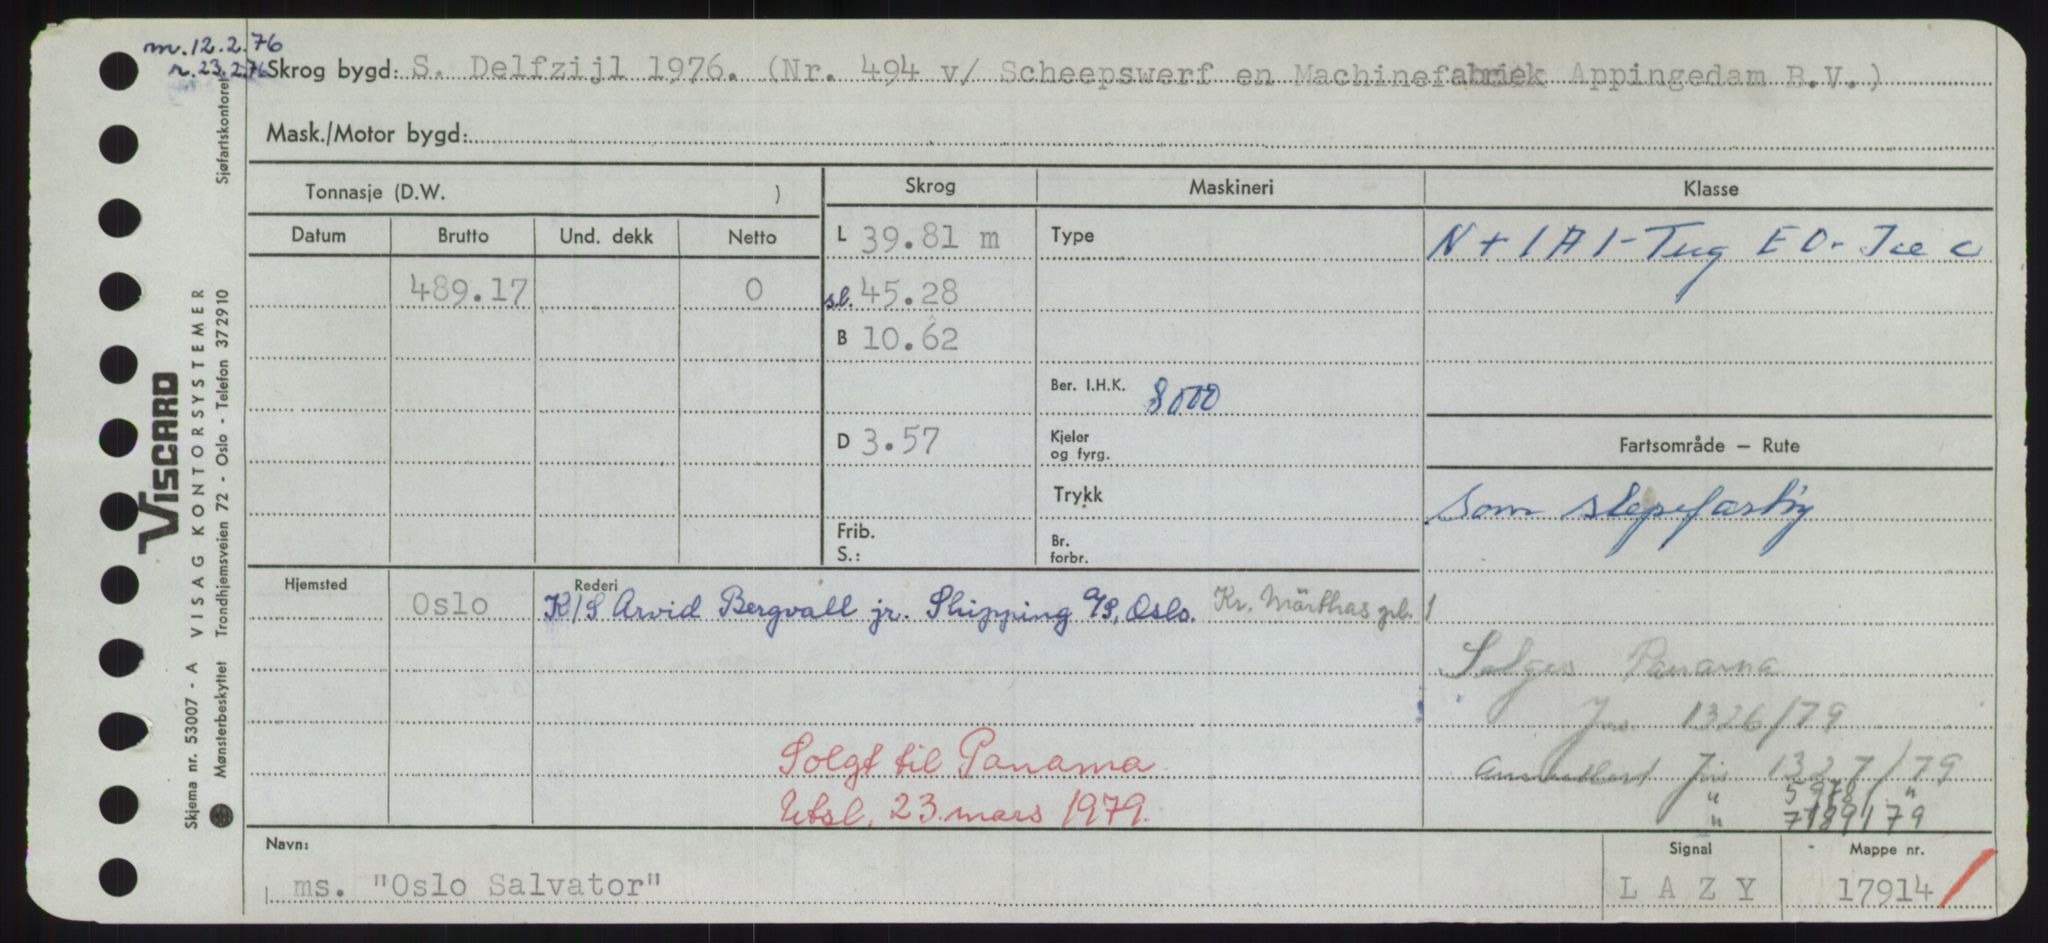 m. 12.2.76
r. 23.2.76
Skrog bygd: S. Delfzijl 1976. (Nr. 494 v/ Scheepswerf en Machinefabriek Appingedam B.V.)
Mask./Motor bygd:
Tonnasje (D.W. )
Skrog
Maskineri
Klasse
Datum Brutto Und. dekk Netto
L 39.81 m
Type
N + 1A1-Tug E0-Ice C
489.17 0
s.l. 45.28
B 10.62
Ber. I.H.K. 8000
D 3.57
Kjeler
og fyrg.
Fartsområde — Rute
Trykk
Som slepefartøy
Frib.
S.:
Br.
forbr.
Hjemsted
Rederi
Oslo K/S Arvid Bergvall jr. Shipping A/S, Oslo. Kr. Märthas pl. 1
Selges Panama
Jnr. 1326/79
Solgt til Panama
Jnr. 1327/79
Utsl. 23. mars 1979.
" 5978 "
" 7189/79
Navn:
ms. "Oslo Salvator"
Signal
LAZY
Mappe nr.
17914
Sjøfartskontoret
VISCARD
VISAG KONTORSYSTEMER
Trondhjemsveien 72 - Oslo - Telefon 372910
Skjema nr. 53007 - A
Mønsterbeskyttet